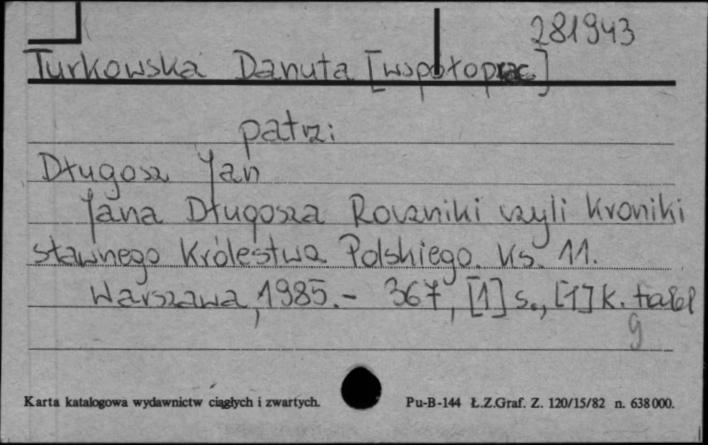 281943
Turkowska Danuta [współoprac.]
patrz:
Długosz Jan
Jana Długosza Roczniki czyli Kroniki
sławnego Królestwa Polskiego. Ks. 11.
Warszawa, 1985.- 367, [1] s., [1] k. tabl
9
Karta katalogowa wydawnictw ciągłych i zwartych. Pu-B-144 Ł.Z.Graf. Z. 120/15/82 n. 638000.